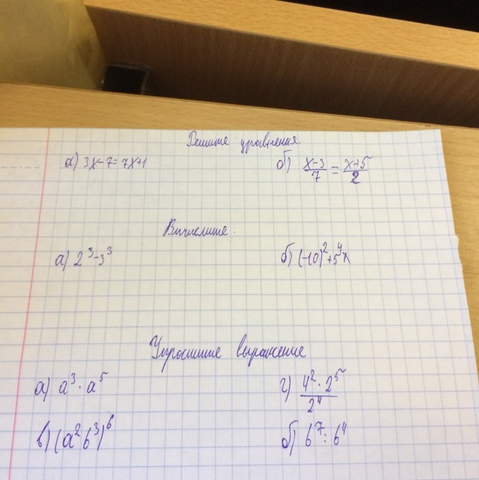 Решите уравнения
а) 3x-7=7x+1 б) x-3/7 = x+5/2
Вычислите
а) 2³-3³ б) (-10)²+5⁴x
Упростите выражение
а) a³·a⁵ г) 4²·2⁵/2⁴
в) (a²b³)⁶ б) b⁷:b⁴